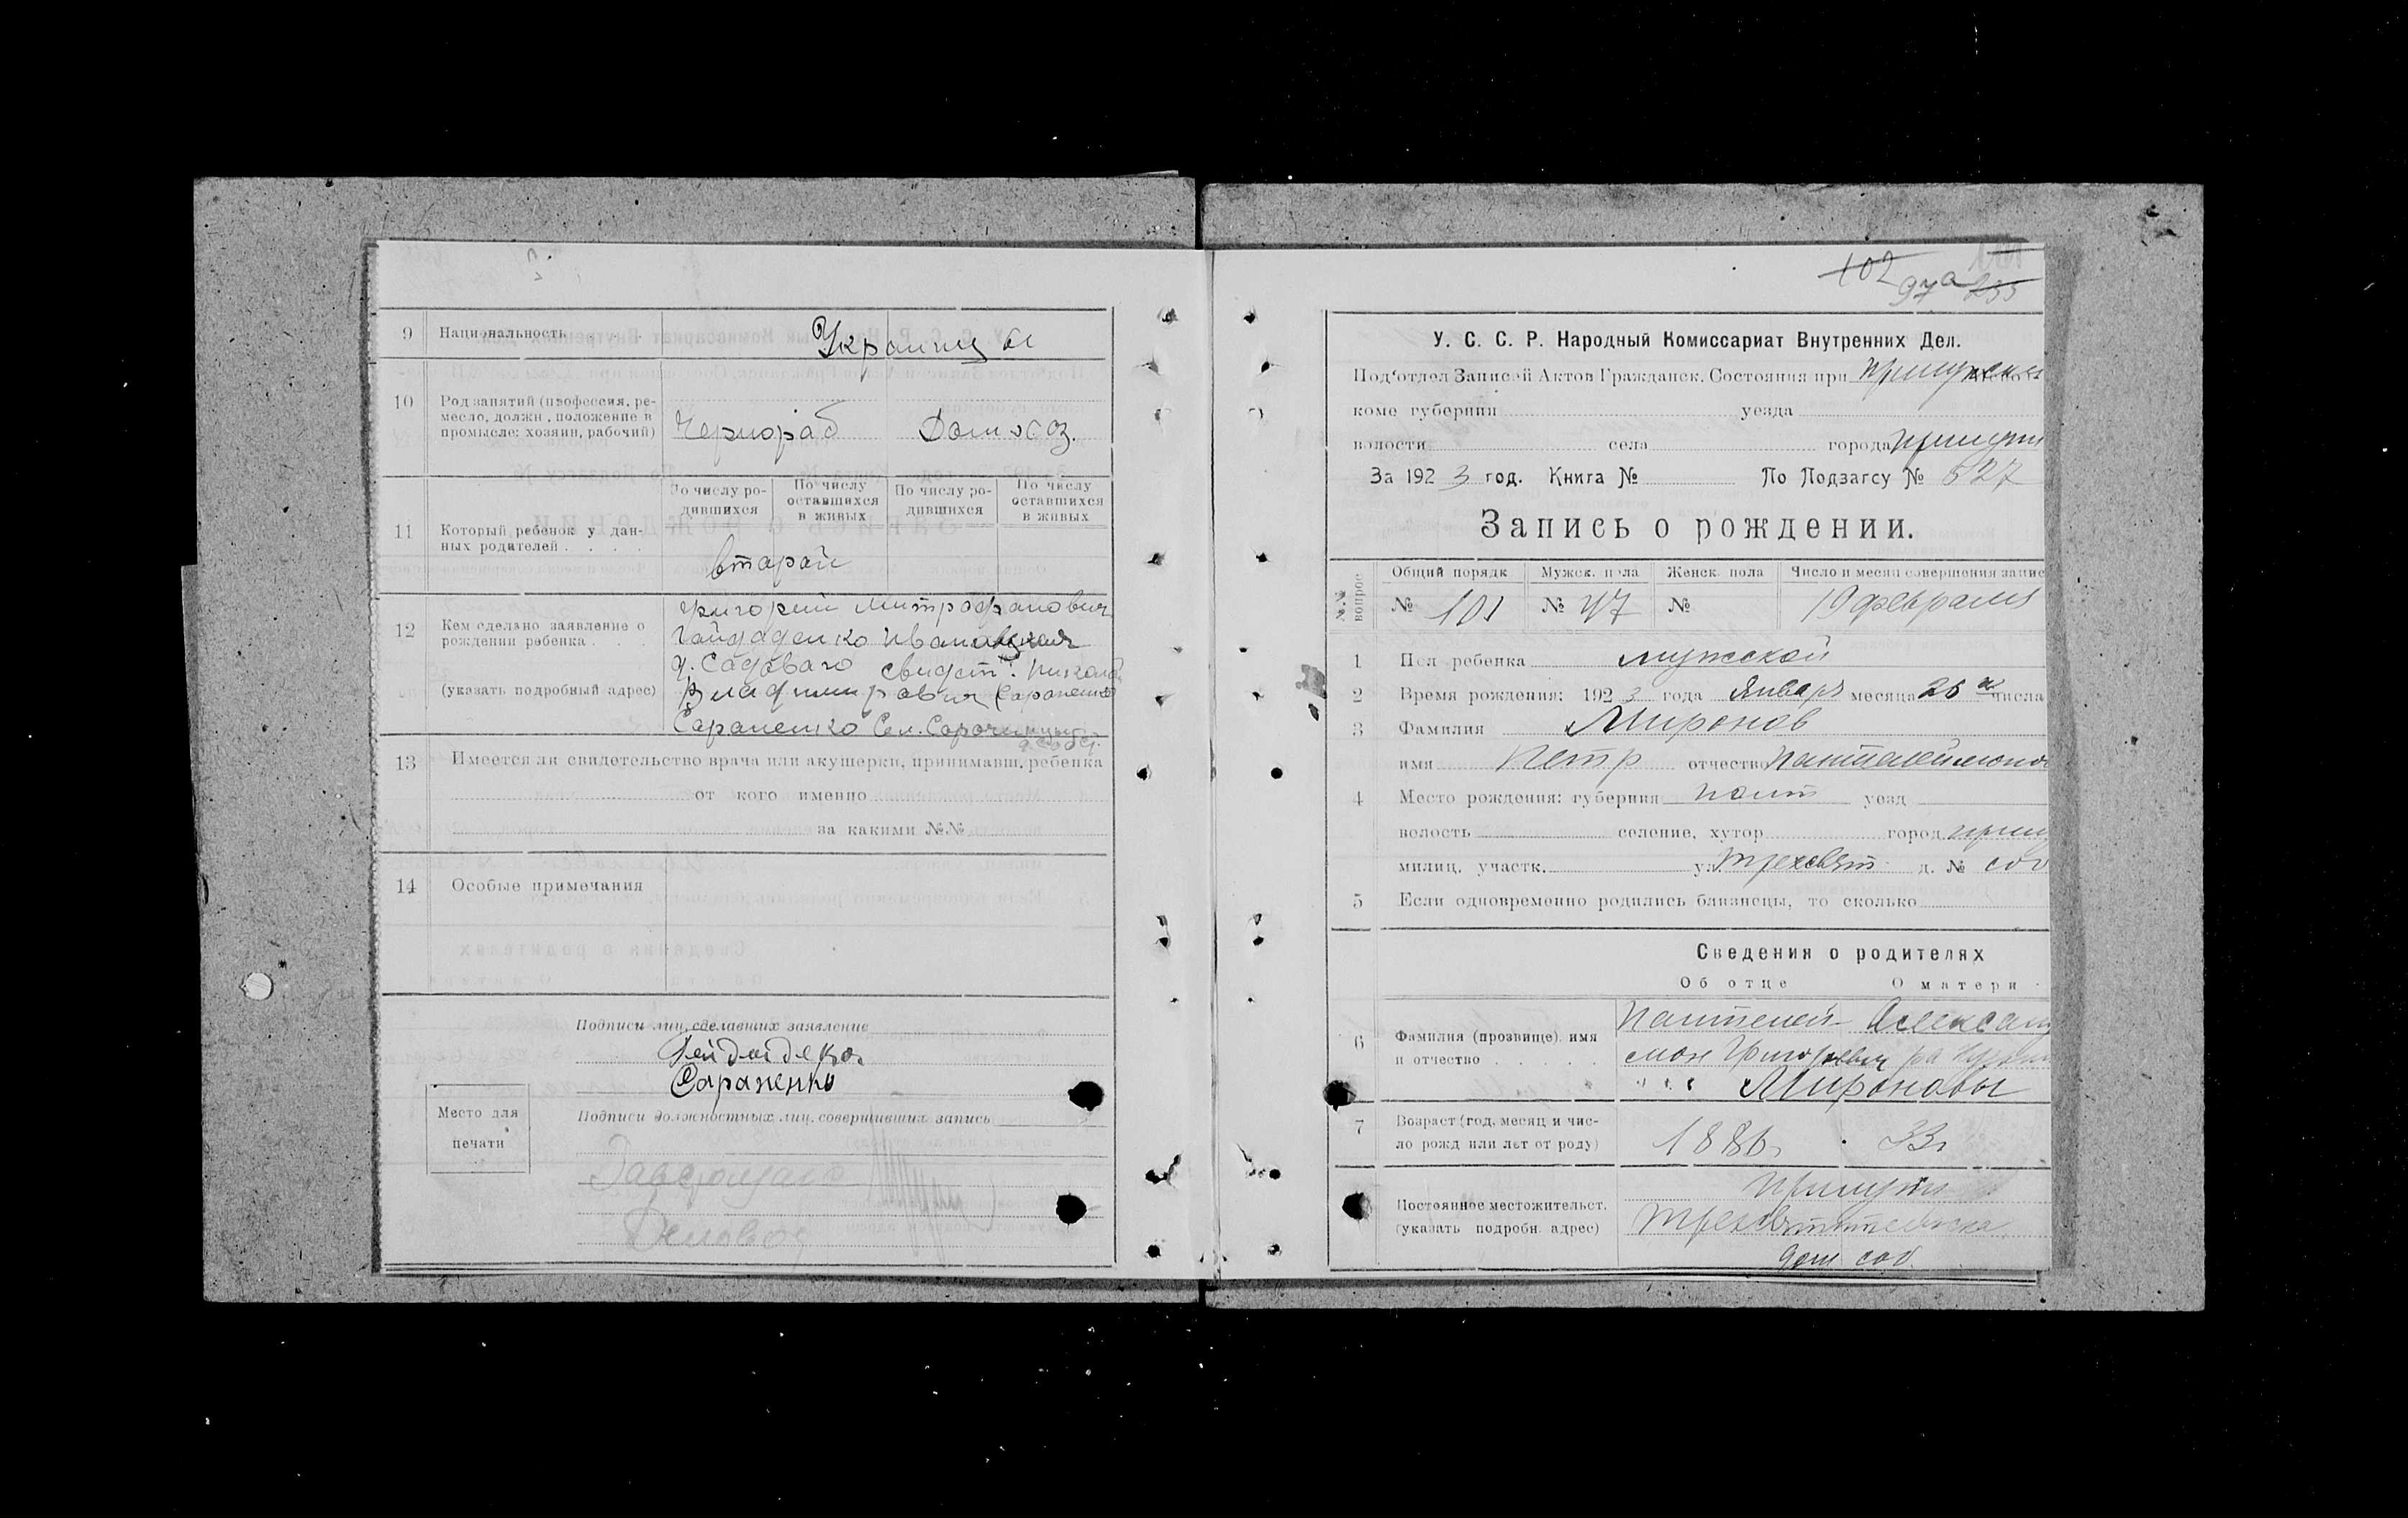 9 Национальность Украинцы
10 Род занятий (профессия, ре-
месло, должн., положение в
промысле: хозяин, рабочий) Чернораб Домхоз.
По числу ро-
дившихся По числу
оставшихся
в живых По числу ро-
дившихся По числу
оставшихся
в живых
11 Который ребенок у дан-
ных родителей . . . . второй
12 Кем сделано заявление о
рождении ребенка . . .
(указать подробный адрес)
Григорий Митрофанович
Гайдаденко Ивановская
д. Садоваго свидет. Никола
Владимирович
Сараненко Сел. Сорочинцы
13 Имеется ли свидетельство врача или акушерки, принимавш. ребенка
от кого именно
за какими №№
14 Особые примечания
Подписи лиц, сделавших заявление
Сараненко
Подписи должностных лиц, совершивших запись
Место для
печати
Деловод
102 97а 255
У. С. С. Р. Народный Комиссариат Внутренних Дел.
Под'отдел Записей Актов Гражданск. Состояния при
коме губернии уезда
волости села города
За 1923 год. Книга № По Подзагсу № 527
Запись о рождении.
№№ вопрос Общий порядк Мужск. пола Женск. пола Число и месяц совершения запис
№ 101 № 47 № 19 февраля
1 Пол ребенка мужской
2 Время рождения: 1923 года Январь месяца 26 числа
3 Фамилия Миронов
имя Петр отчество Пантелеймоно
4 Место рождения: губерния Полт уезд
волость селение, хутор город
милиц. участк. ул Трехсвят д. № соб
5 Если одновременно родились близнецы, то сколько
Сведения о родителях
Об отце О матери
6 Фамилия (прозвище) имя
и отчество . . . . . .
Пантелей- Александ
мон Григорьевич ра
Мироновы
7 Возраст (год, месяц и чис-
ло рожд или лет от роду) 1886 33
Постоянное местожительст.
(указать подробн. адрес)
Трехсвятительска
дом соб.